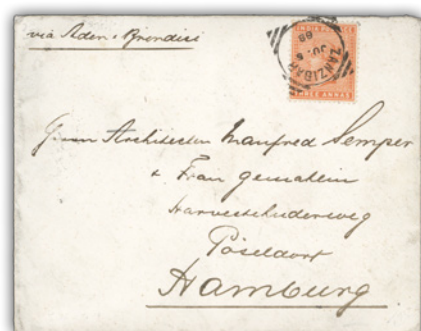 via Aden & Brindisi
INDIA POSTAGE
THREE ANNAS
ZANZIBAR
JU. 6
88
Herrn Architecten Manfred Semper
& Frau Gemahlin
Harvestehuderweg
Pöseldorf
Hamburg